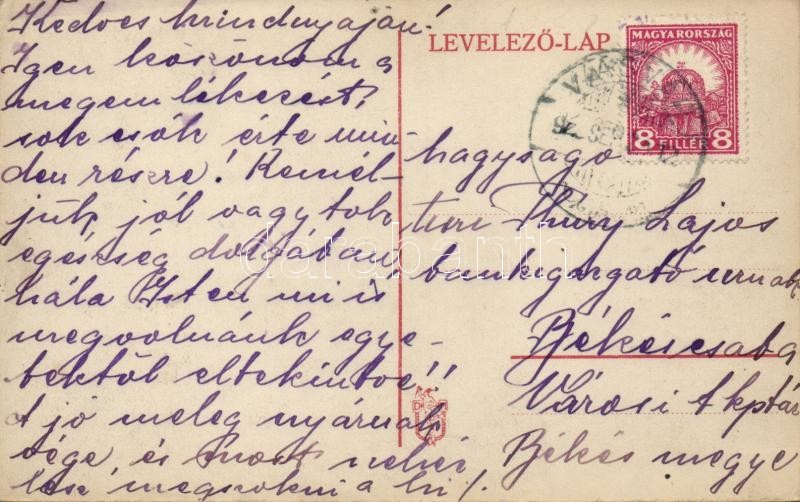 Kedves mindnyájan!
Igen köszönöm a
megemlékezést,
sok csók érte min-
den részre! Remél-
jük, jól vagytok
egészség dolgában,
hála Isten mi is
megvolnánk egye-
bektől eltekintve!!
A jó meleg nyárnak
vége, és most nehéz
lesz megszokni a
LEVELEZŐ-LAP
MAGYARORSZÁG
8 FILLÉR 8
hagyságos
turi Thury Lajos
bankigazgató urnak
Békéscsaba
Városi Tkptár
Békés megye
darabanth